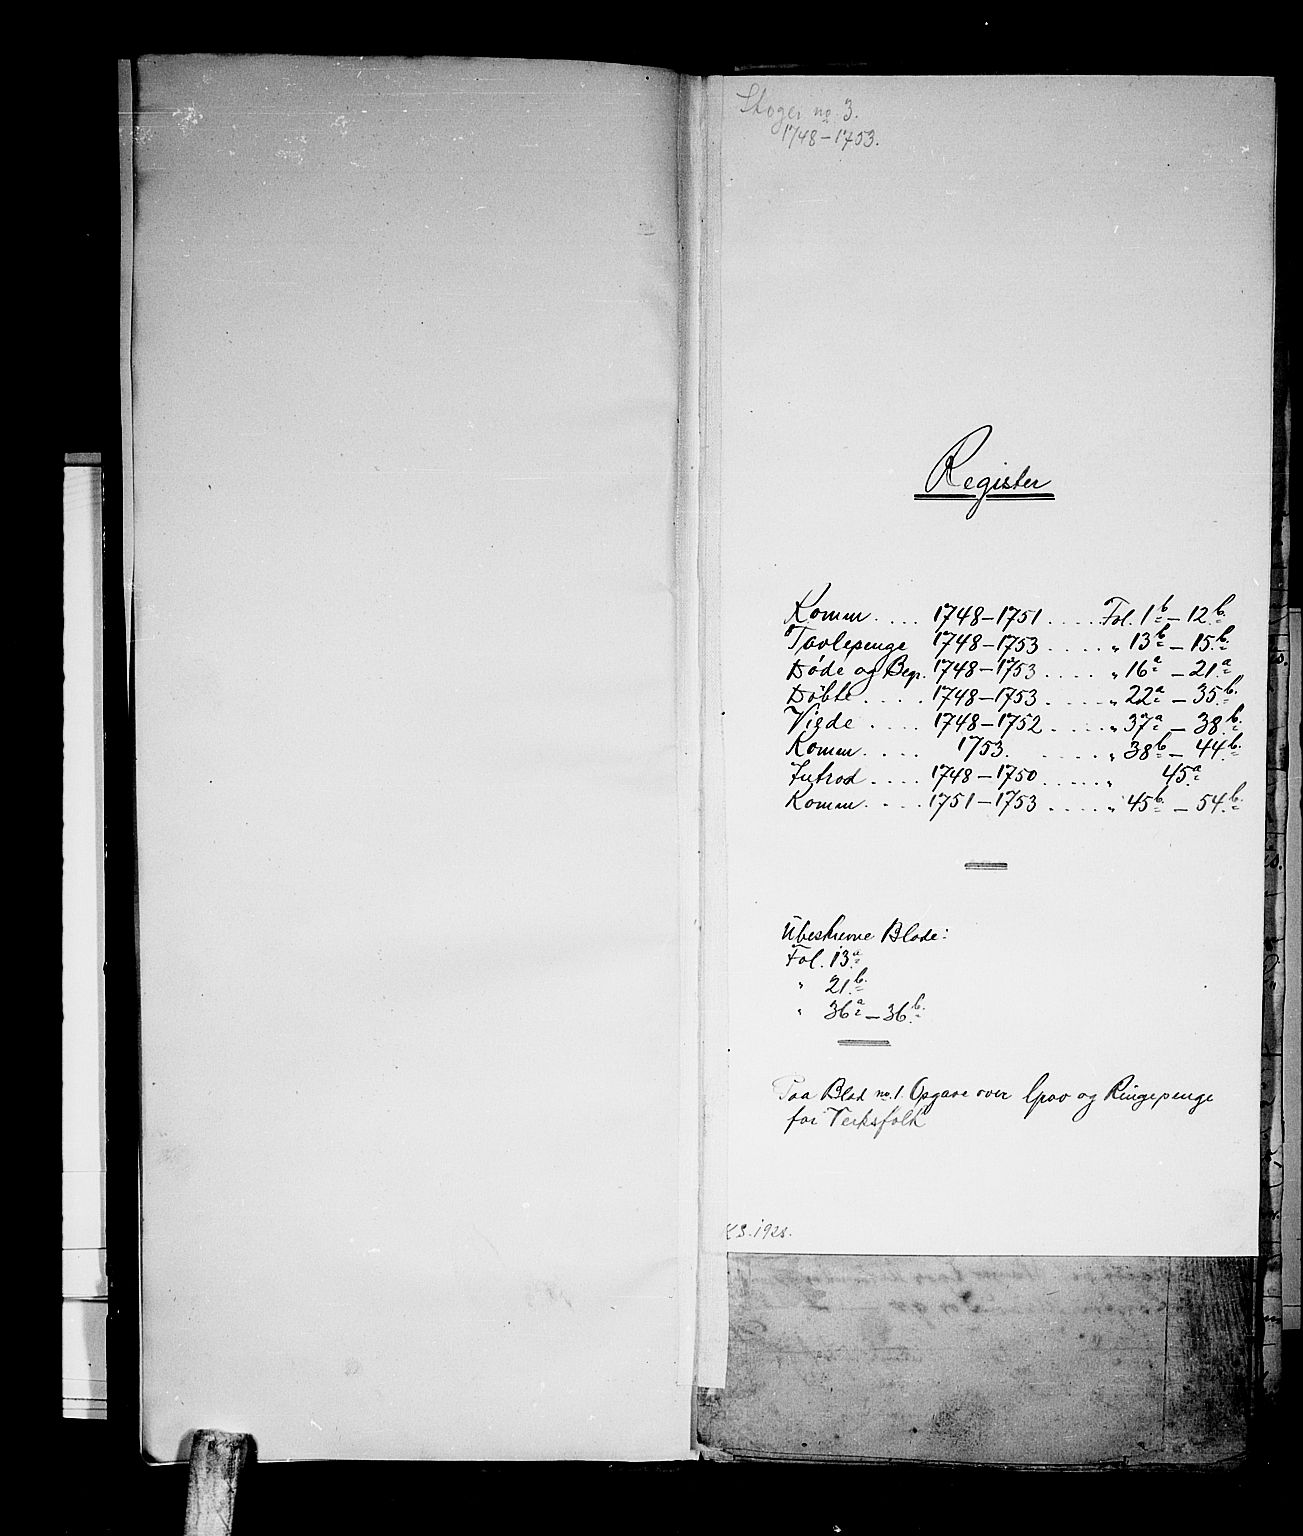 Skoger no. 3.
1748–1753.
Register
Komm. . . . 1748–1751 . . . . Fol. 1b – 12b.
Tavlepenge 1748–1753 . . . . „ 13b – 15b.
Døde og Begr. 1748–1753 . . . . „ 16a – 21a
Døbte . . . . 1748–1753 . . . . „ 22a – 35b.
Viede . . . . 1748–1752 . . . . „ 37a – 38b.
Komm. . . . 1753. . . . . „ 38b – 44b.
Introd . . . . 1748–1750 . . . . „ 45a
Komm. . . . 1751–1753 . . . . „ 45b – 54b.
Ubeskrevne Blade:
Fol. 13a
„ 21b.
„ 36a – 36b.
Paa Blad no. 1 Opgave over Grav og Ringepenge
for Verksfolk
KS. 1928.